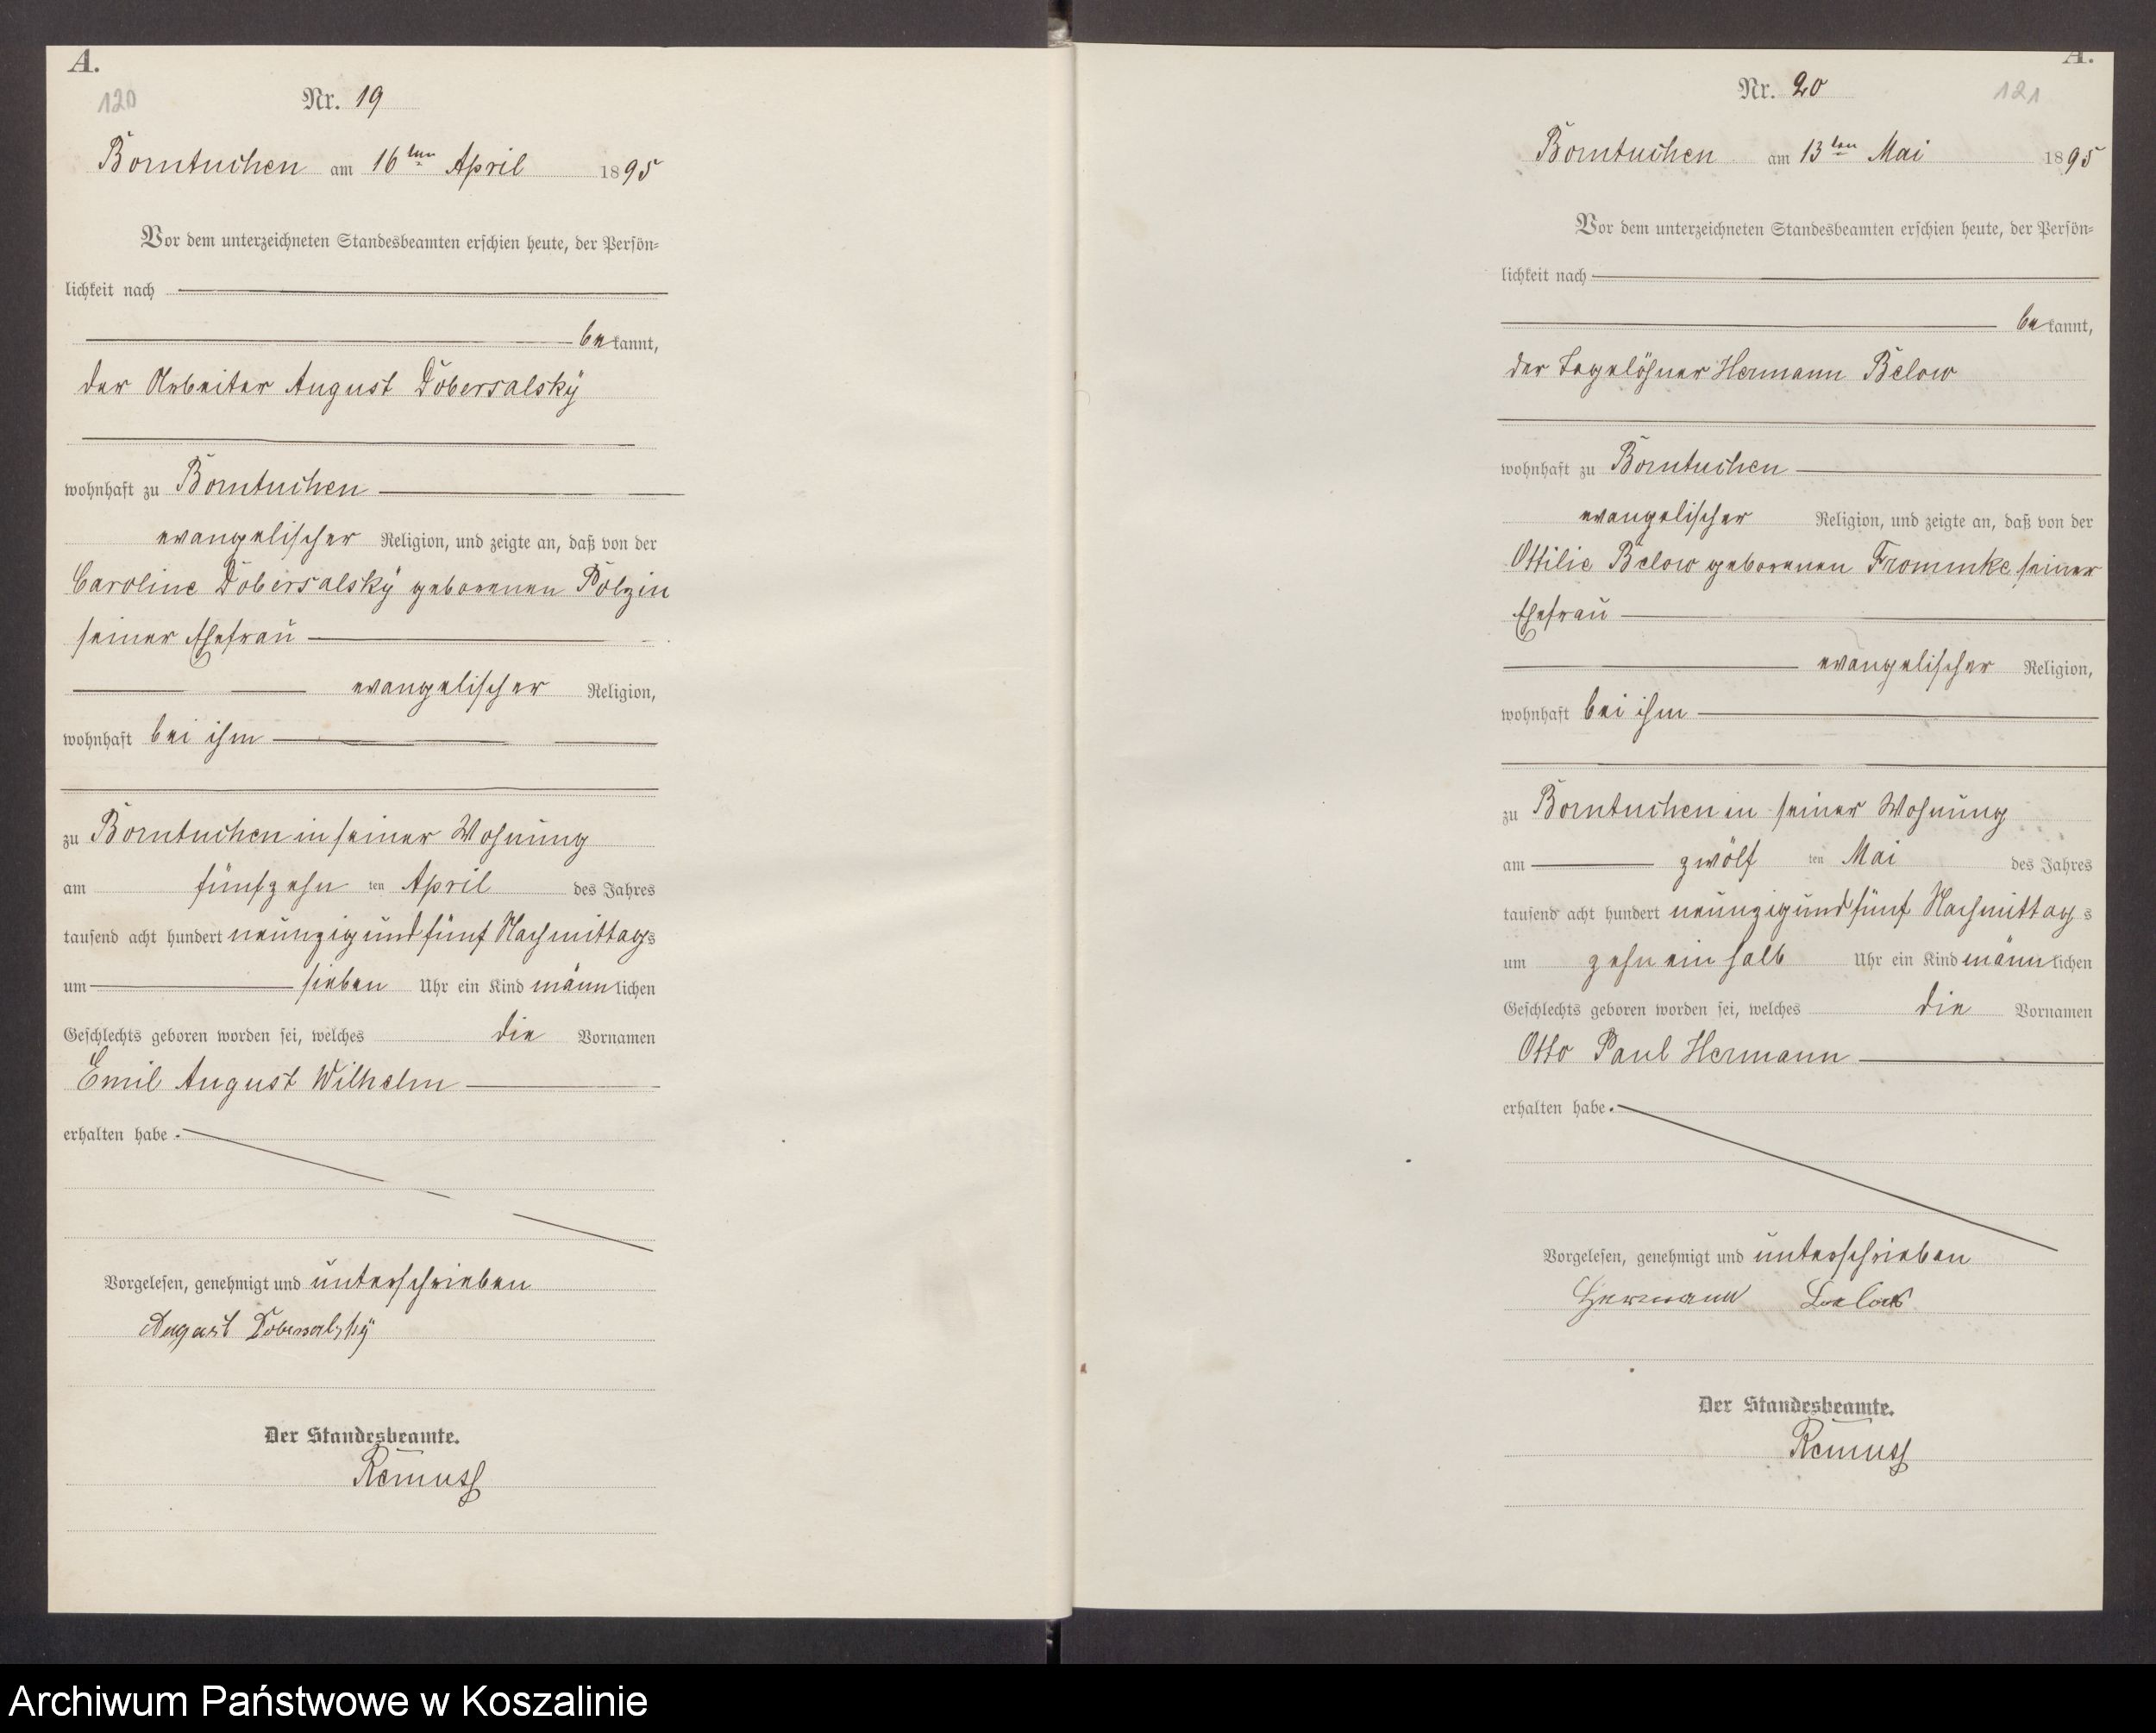 A.
120
Nr. 19
Borntuchen am 16ten April 1895
Vor dem unterzeichneten Standesbeamten erschien heute, der Persön-
lichkeit nach
bekannt,
der Arbeiter August Dobersalsky
wohnhaft zu Borntuchen
evangelischer Religion, und zeigte an, daß von der
Caroline Dobersalsky geborenen Polzin
seiner Ehefrau
evangelischer Religion,
wohnhaft bei ihm
zu Borntuchen in seiner Wohnung
am fünfzehn ten April des Jahres
tausend acht hundert neunzig und fünf Nachmittags
um sieben Uhr ein Kind männlichen
Geschlechts geboren worden sei, welches die Vornamen
Emil August Wilhelm
erhalten habe.
Vorgelesen, genehmigt und unterschrieben
August Dobersalsky
Der Standesbeamte.
Remus
A.
121
Nr. 20
Borntuchen am 13ten Mai 1895
Vor dem unterzeichneten Standesbeamten erschien heute, der Persön-
lichkeit nach
bekannt,
der Tagelöhner Hermann Below
wohnhaft zu Borntuchen
evangelischer Religion, und zeigte an, daß von der
Ottilie Below geborenen Frommke seiner
Ehefrau
evangelischer Religion,
wohnhaft bei ihm
zu Borntuchen in seiner Wohnung
am zwölf ten Mai des Jahres
tausend acht hundert neunzig und fünf Nachmittags
um zehn ein halb Uhr ein Kind männlichen
Geschlechts geboren worden sei, welches die Vornamen
Otto Paul Hermann
erhalten habe.
Vorgelesen, genehmigt und unterschrieben
Hermann Below
Der Standesbeamte.
Remus
Archiwum Państwowe w Koszalinie